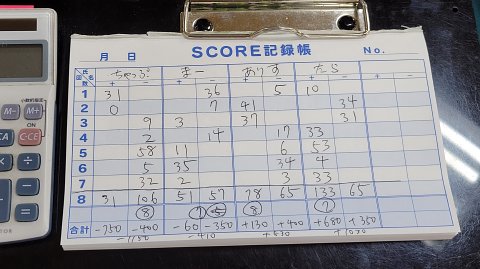 SCORE記録帳
月 日 No.
氏名 回数 ちゃっぷ まー ありす たら
+ - + - + - + - + -
1 31 36 5 10
2 0 7 41 34
3 9 3 37 31
4 2 14 17 33
5 58 11 6 53
6 5 35 34 4
7 32 2 3 33
8 31 106 51 57 78 65 133 65
⑧ ⑦ ⑤ ⑧ ⑦
合計 -750 -400 -60 -350 +130 +400 +680 +350
-1150 -410 +530 +1030
M- M+
CA C·CE
ON